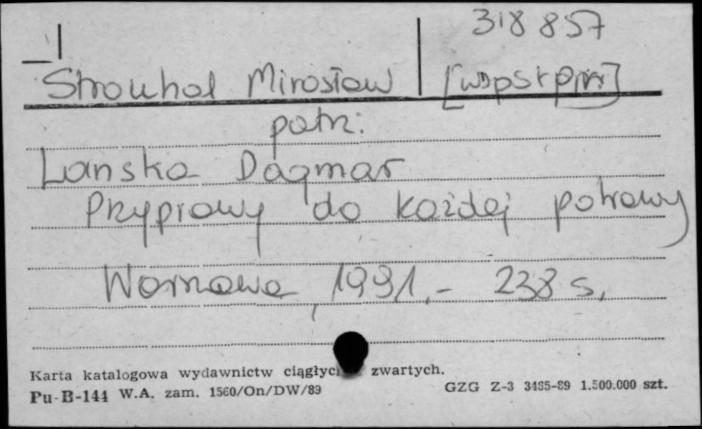 318857
Strouhal Mirosław [współpr]
patrz:
Lanska Dagmar
Przyprawy do każdej potrawy
Warszawa, 1991.- 238 s.
Karta katalogowa wydawnictw ciągłych zwartych.
Pu-B-144 W.A. zam. 1560/On/DW/89 GZG Z-3 3485-89 1.500.000 szt.